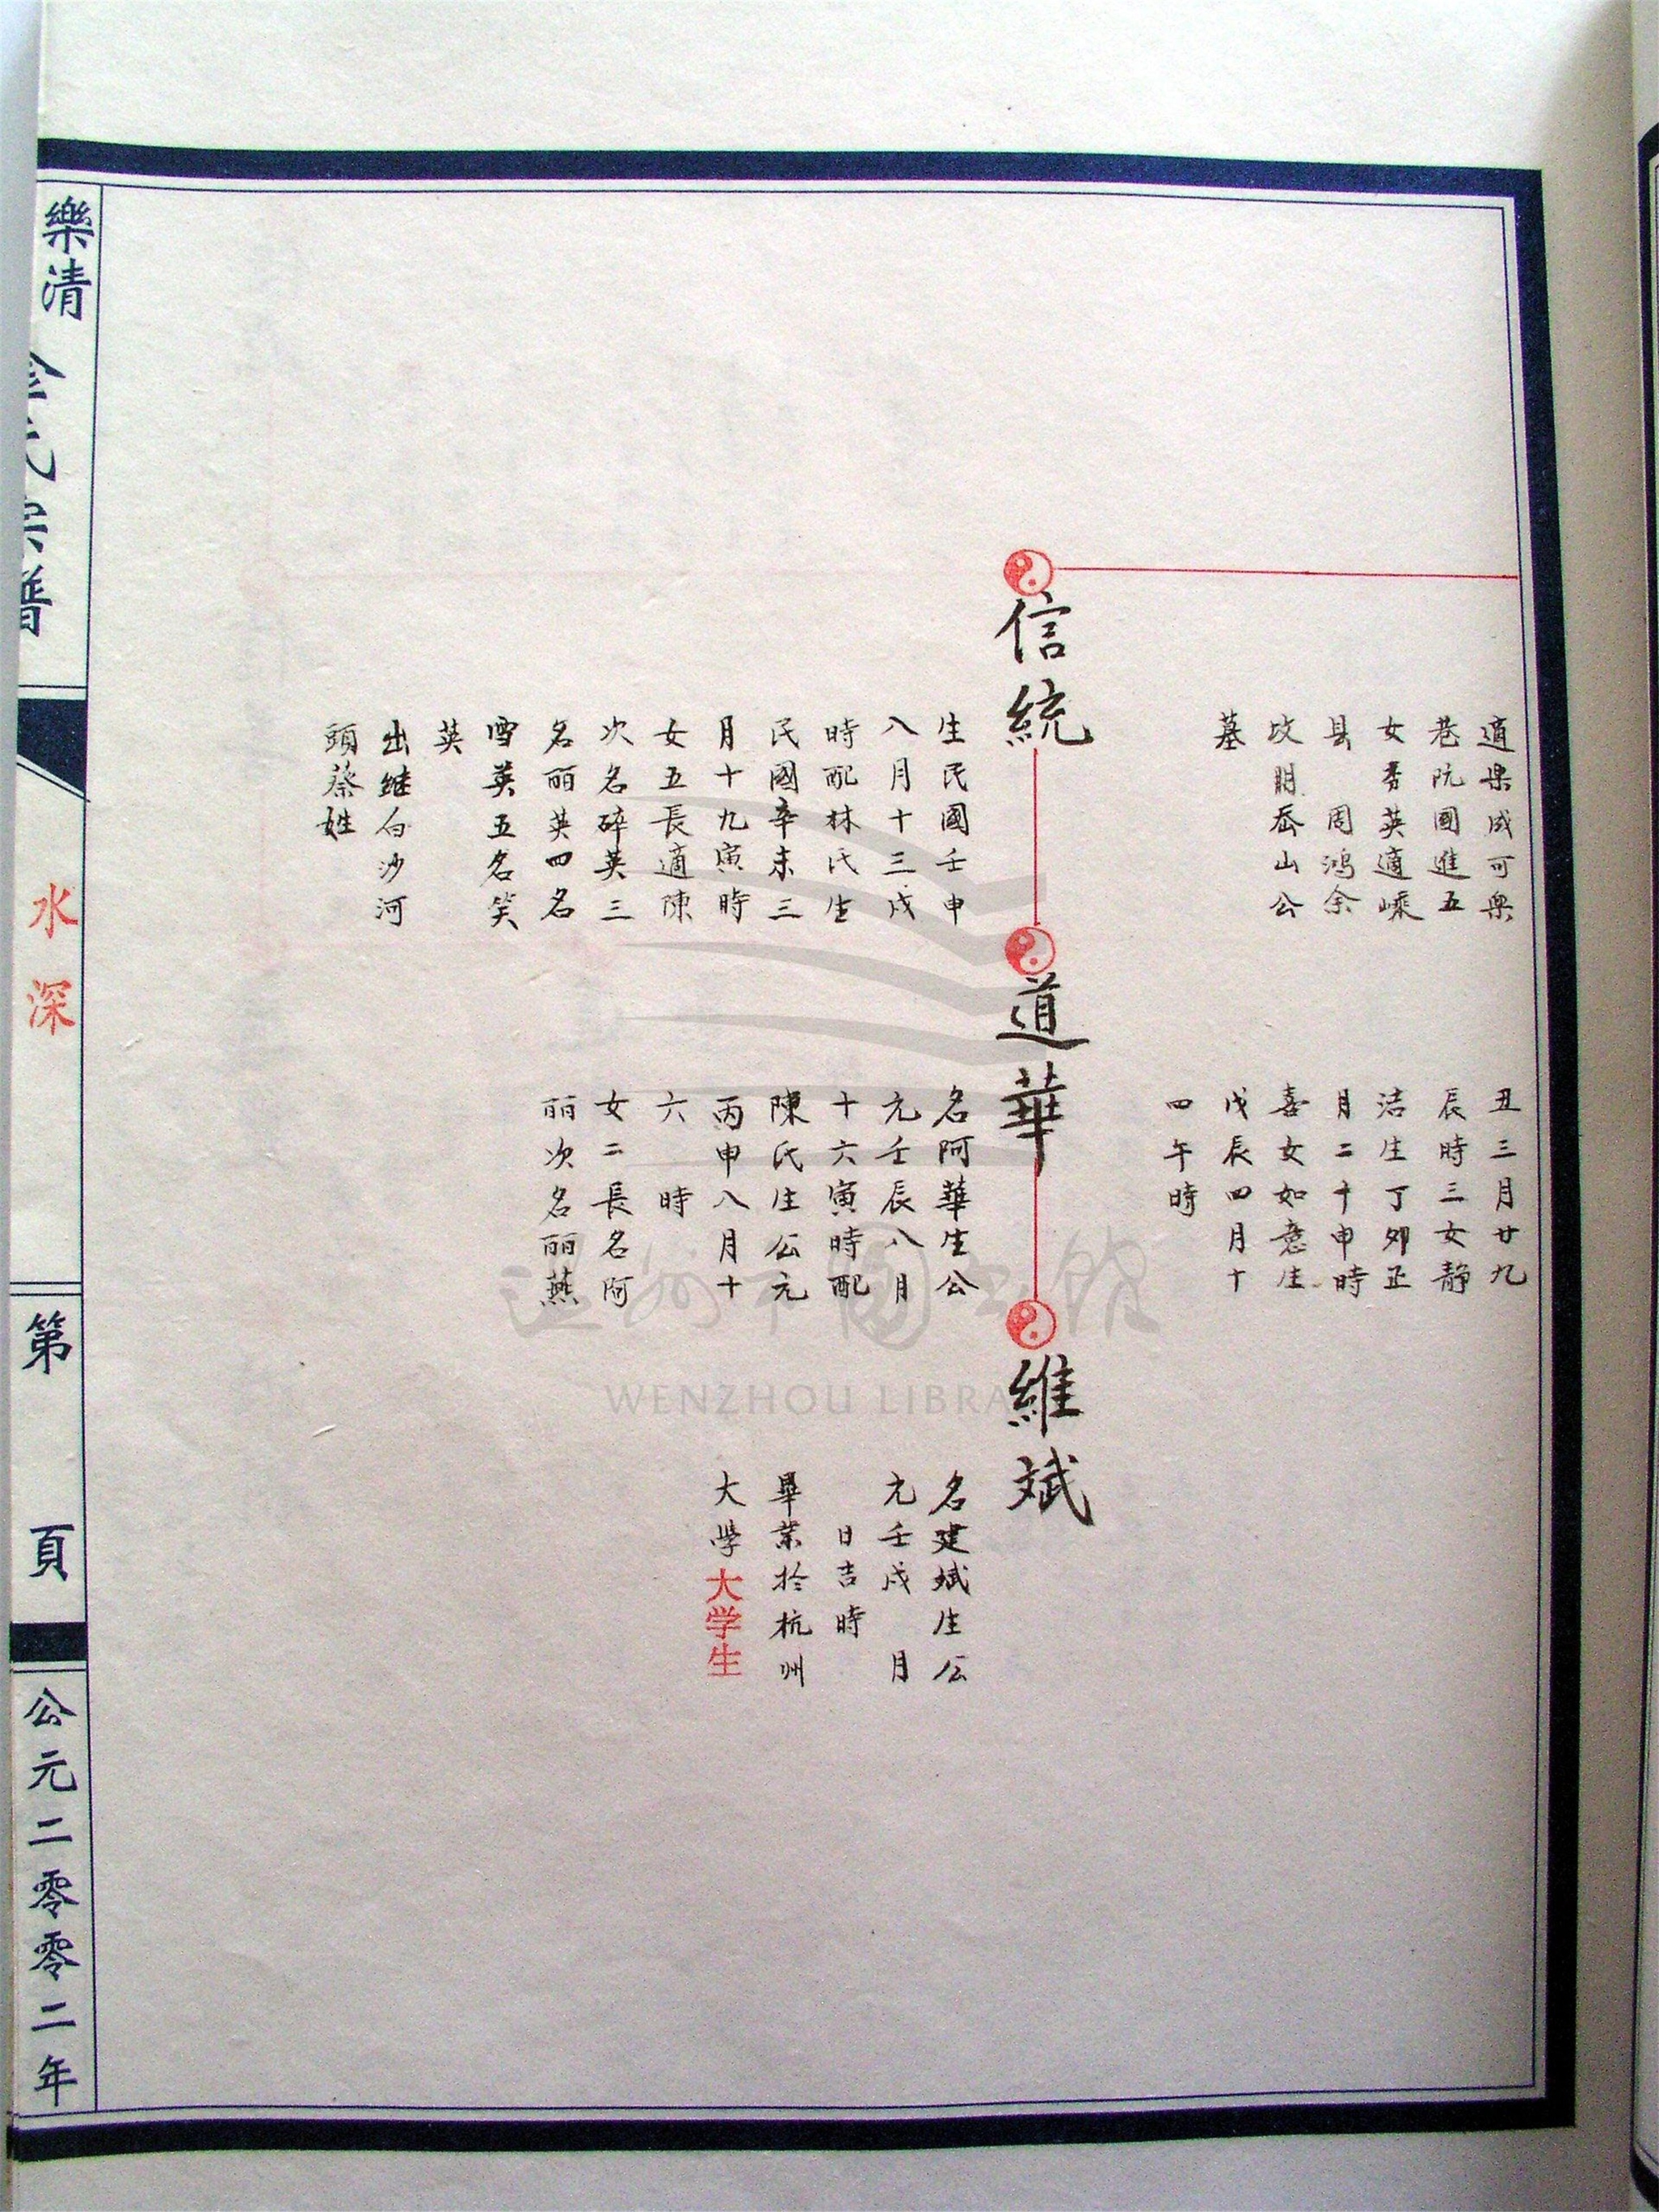 適樂成可樂
巷阮國進五
女秀英適嵊
县 周鴻余
坟眀岙山公
墓
丑三月廿九
辰時三女静
洁生丁卯正
月二十申時
喜女如意生
戊辰四月十
四午時
信統
生民國壬申
八月十三戌
時配林氏生
民國辛未三
月十九寅時
女五長適陳
次名碎英三
名丽英四名
雪英五名笑
英
出继白沙河
頭蔡姓
道華
名阿華生公
元壬辰八月
十六寅時配
陳氏生公元
丙申八月十
六 時
女二長名阿
丽次名丽燕
維斌
名建斌生公
元壬戌 月
日吉時
畢業於杭州
大學大学生
樂清 金氏宗譜
水深
第 頁
公元二零零二年
温州市图书馆
WENZHOU LIBRA